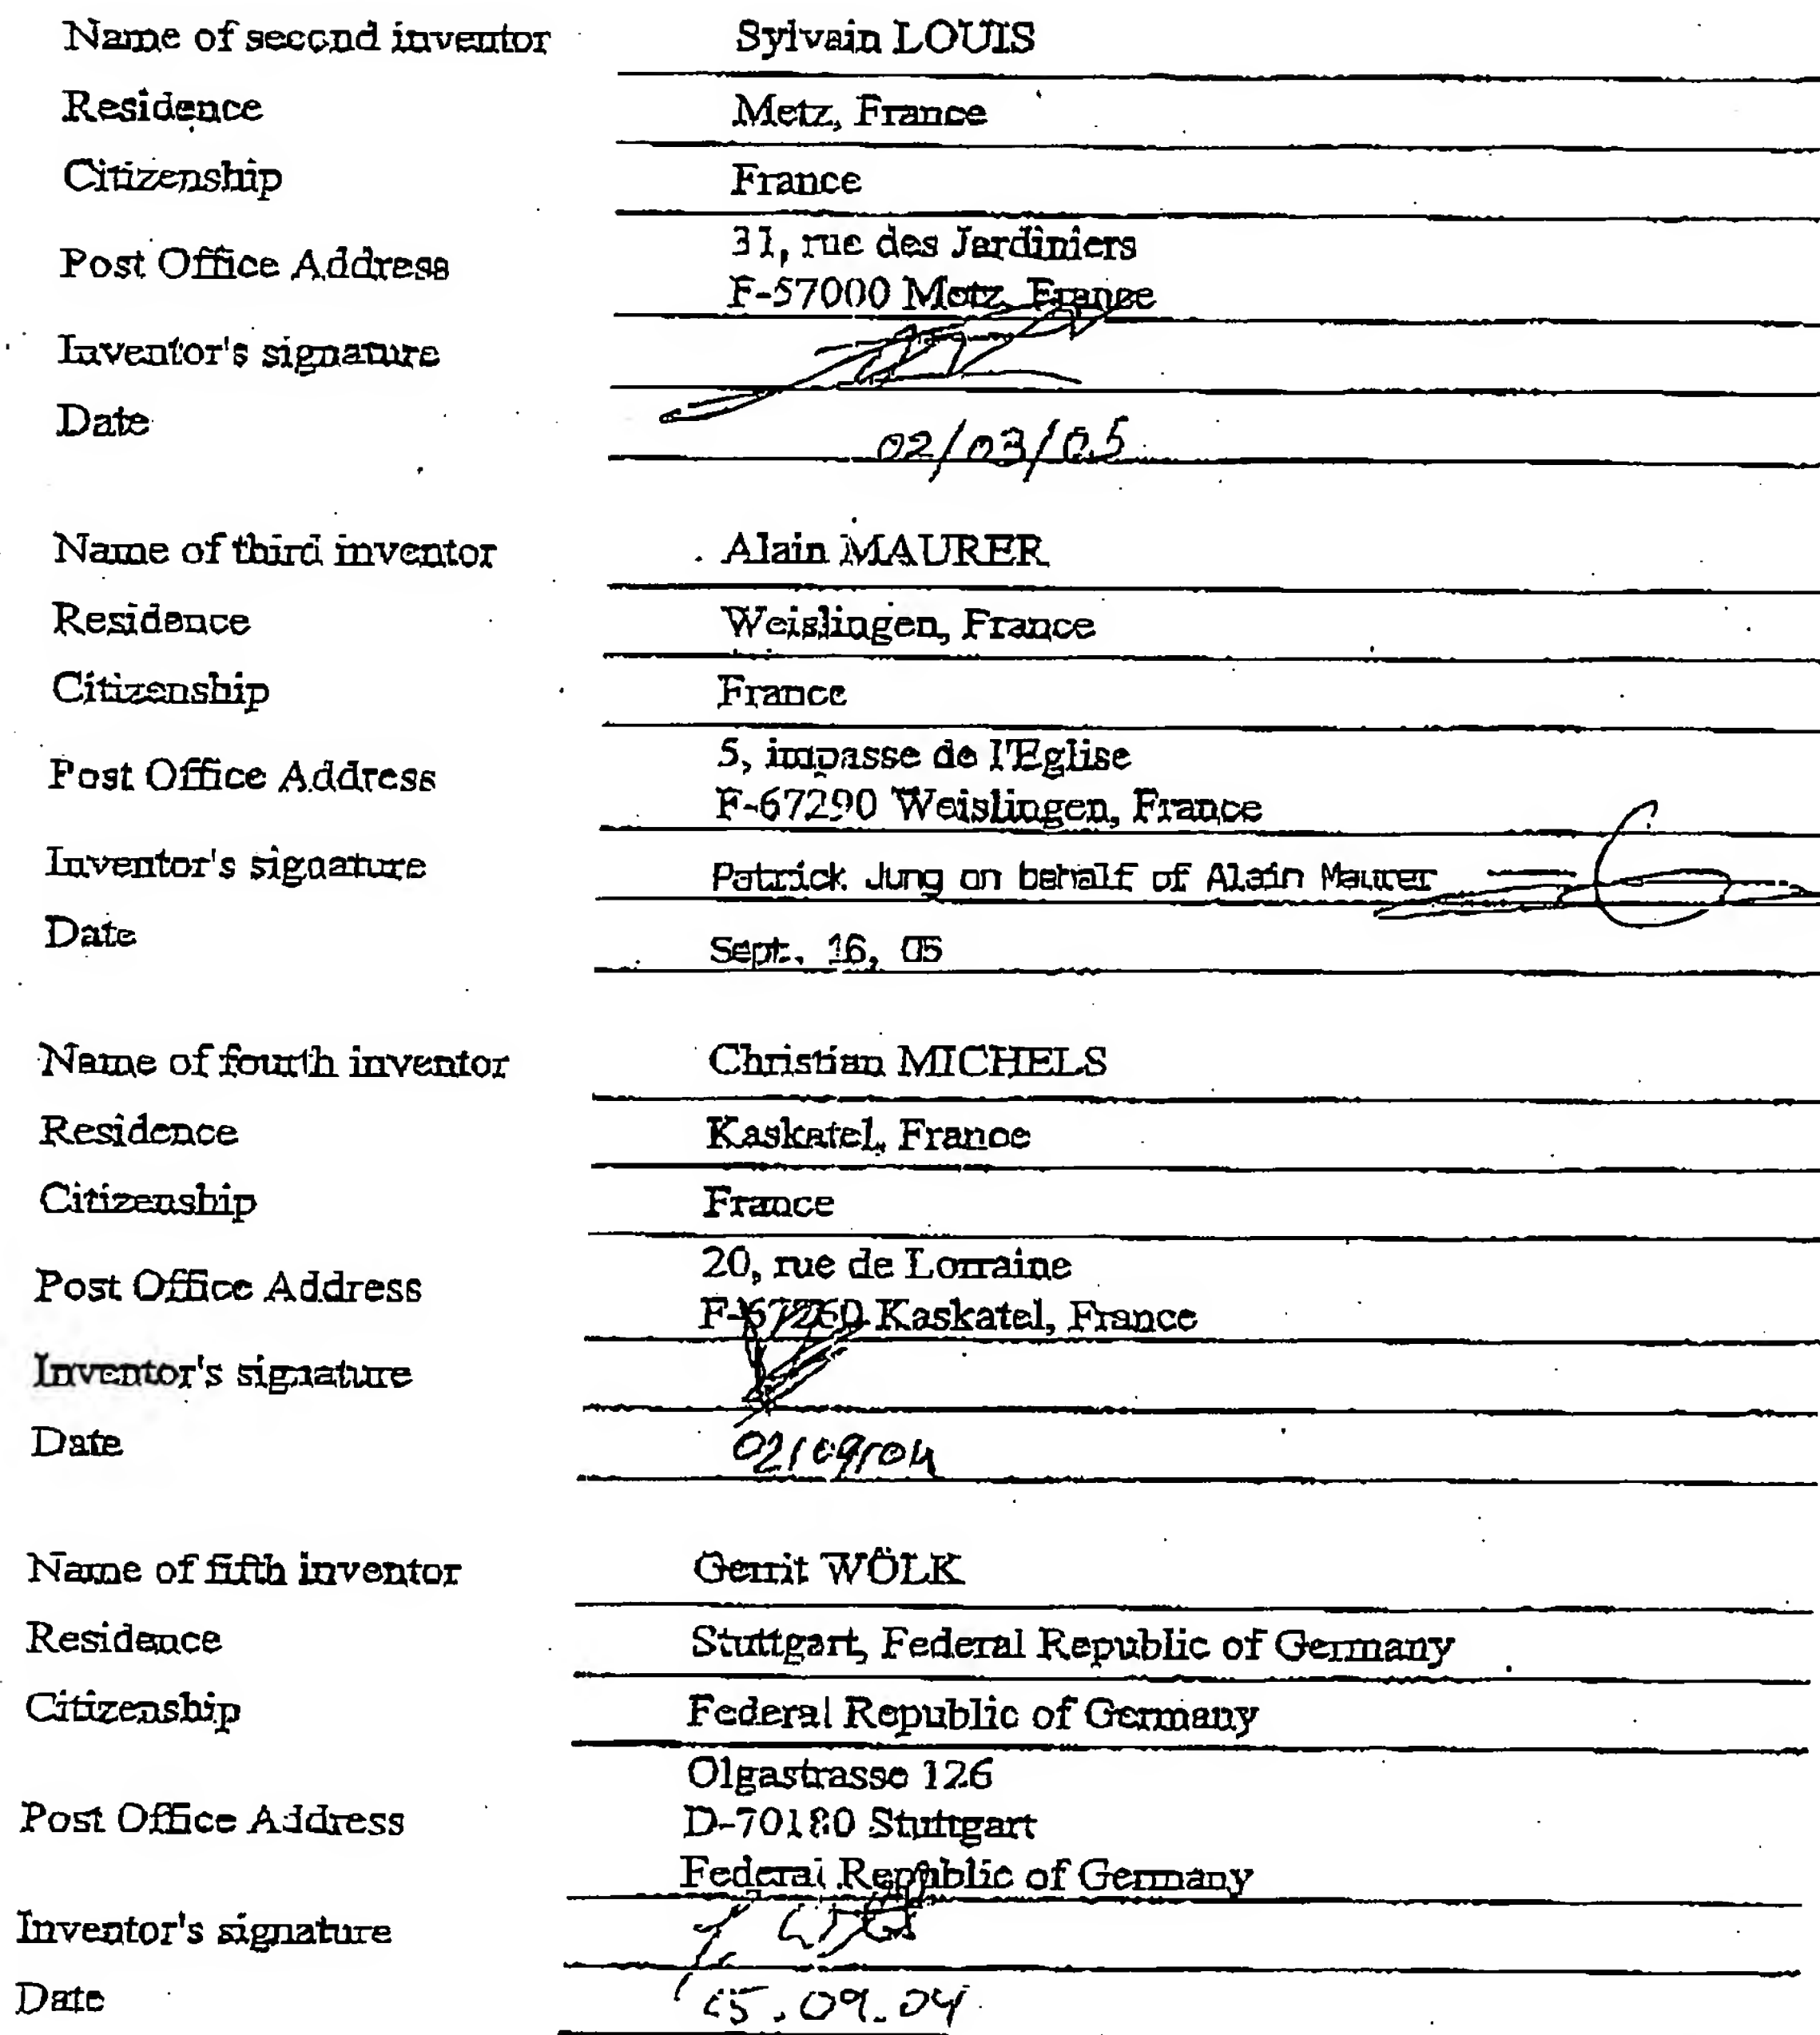 Name of second inventor Sylvain LOUIS
Residence Metz, France
Citizenship France
Post Office Address 31, rue des Jardiniers
F-57000 Metz, France
Inventor's signature
Date 02/03/05
Name of third inventor Alain MAURER
Residence Weislingen, France
Citizenship France
Post Office Address 5, impasse de l'Eglise
F-67290 Weislingen, France
Inventor's signature Patrick Jung on behalf of Alain Maurer
Date Sept. 16, 05
Name of fourth inventor Christian MICHELS
Residence Kaskatel, France
Citizenship France
Post Office Address 20, rue de Lorraine
F-67260 Kaskatel, France
Inventor's signature
Date 02/09/04
Name of fifth inventor Gerrit WÖLK
Residence Stuttgart, Federal Republic of Germany
Citizenship Federal Republic of Germany
Olgastrasse 126
Post Office Address D-70180 Stuttgart
Federal Republic of Germany
Inventor's signature
Date 15.09.04